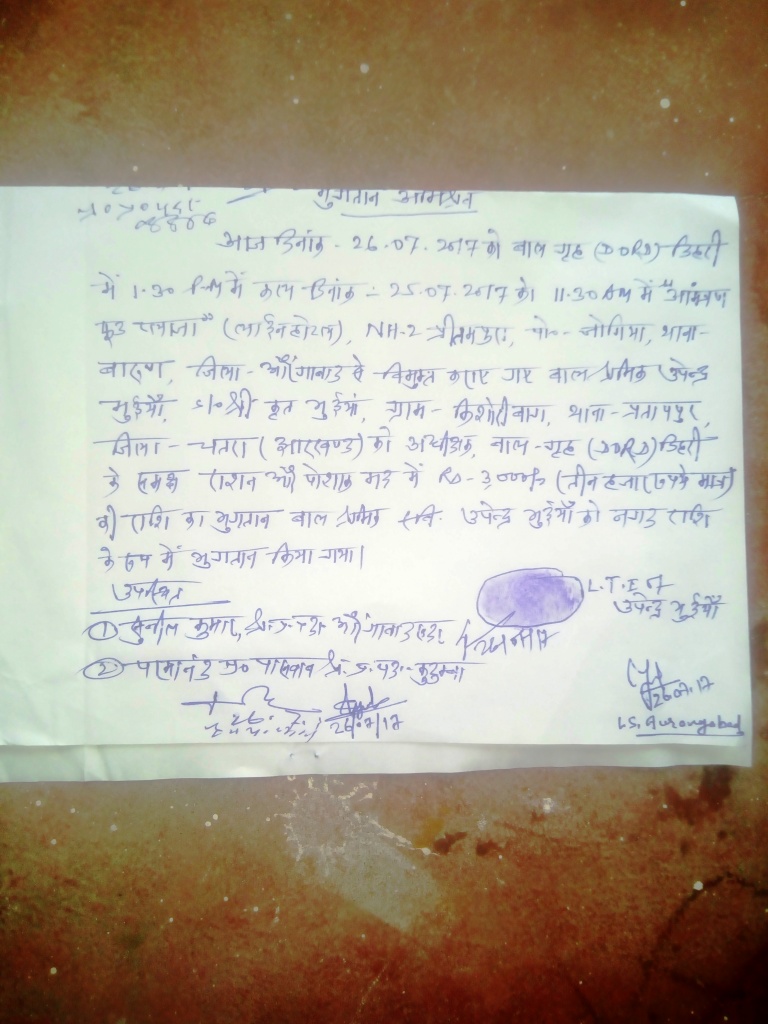 भुगतान
आज दिनांक - 26.07.2017 को बाल गृह (DORD) डिहरी
में 1.30 PM में कल दिनांक - 25.07.2017 को 11.30 AM में "आमंत्रण
फूड प्लाजा" (लाईनहोटल), NH-2 प्रीतमपुर, पो०- जोगिया, थाना-
बारुण, जिला - औरंगाबाद से विमुक्त कराए गए बाल श्रमिक उपेन्द्र
भुईयाँ, S/o श्री कृत भुईयां, ग्राम - किशोरी बाग, थाना - प्रतापपुर,
जिला - चतरा (झारखण्ड) को अधीक्षक, बाल-गृह (DORD) डिहरी
के समक्ष राशन और पोशाक मद में Rs- 3,000/- (तीन हजार रुपये मात्र)
की राशि का भुगतान बाल श्रमिक उपेन्द्र भुईयाँ को नगद राशि
के रूप में भुगतान किया गया।
उपस्थित
L.T.I of
उपेन्द्र भुईयाँ
① सुनील कुमार, श्र.प्र.पदा. औरंगाबाद सदर
② परमानंद प्र० पासवान श्र.प्र.पदा.- कुटुम्बा
26.07.17
26/7/17
L.S. Aurangabad